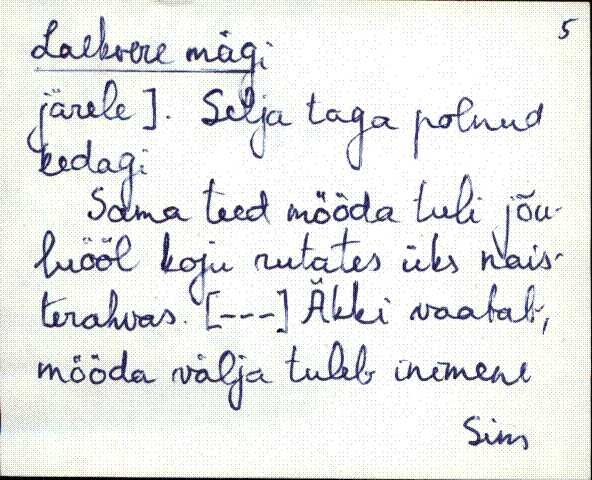 5
Laekvere mägi
järele]. Selja taga polnud
kedagi
Sama teed mööda tuli jõu-
luööl koju rutates üks nais-
terahvas. [---] Äkki vaatab,
mööda välja tuleb inimene
Sim